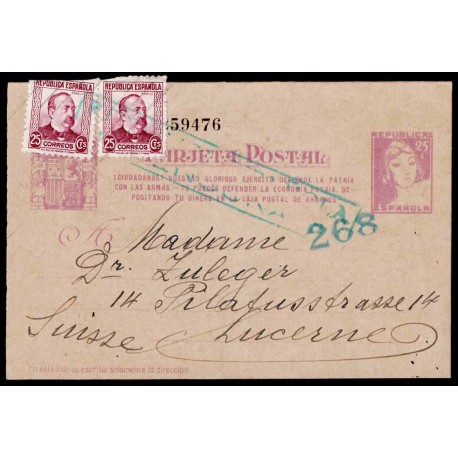 REPÚBLICA ESPAÑOLA
25 CORREOS Cts
REPÚBLICA ESPAÑOLA
25 CORREOS Cts
59476
TARJETA POSTAL
¡CIUDADANOS! NUESTRO GLORIOSO EJERCITO DEFIENDE LA PATRIA
CON LAS ARMAS — TU PUEDES DEFENDER LA ECONOMIA PATRIA, DE-
POSITANDO TU DINERO EN LA CAJA POSTAL DE AHORROS
REPUBLICA
25
ESPAÑOLA
268
A
Madame
Dr. Zuleger
14 Pilatusstrasse 14
Suisse Lucerne
En este lado se escribe solamente la dirección